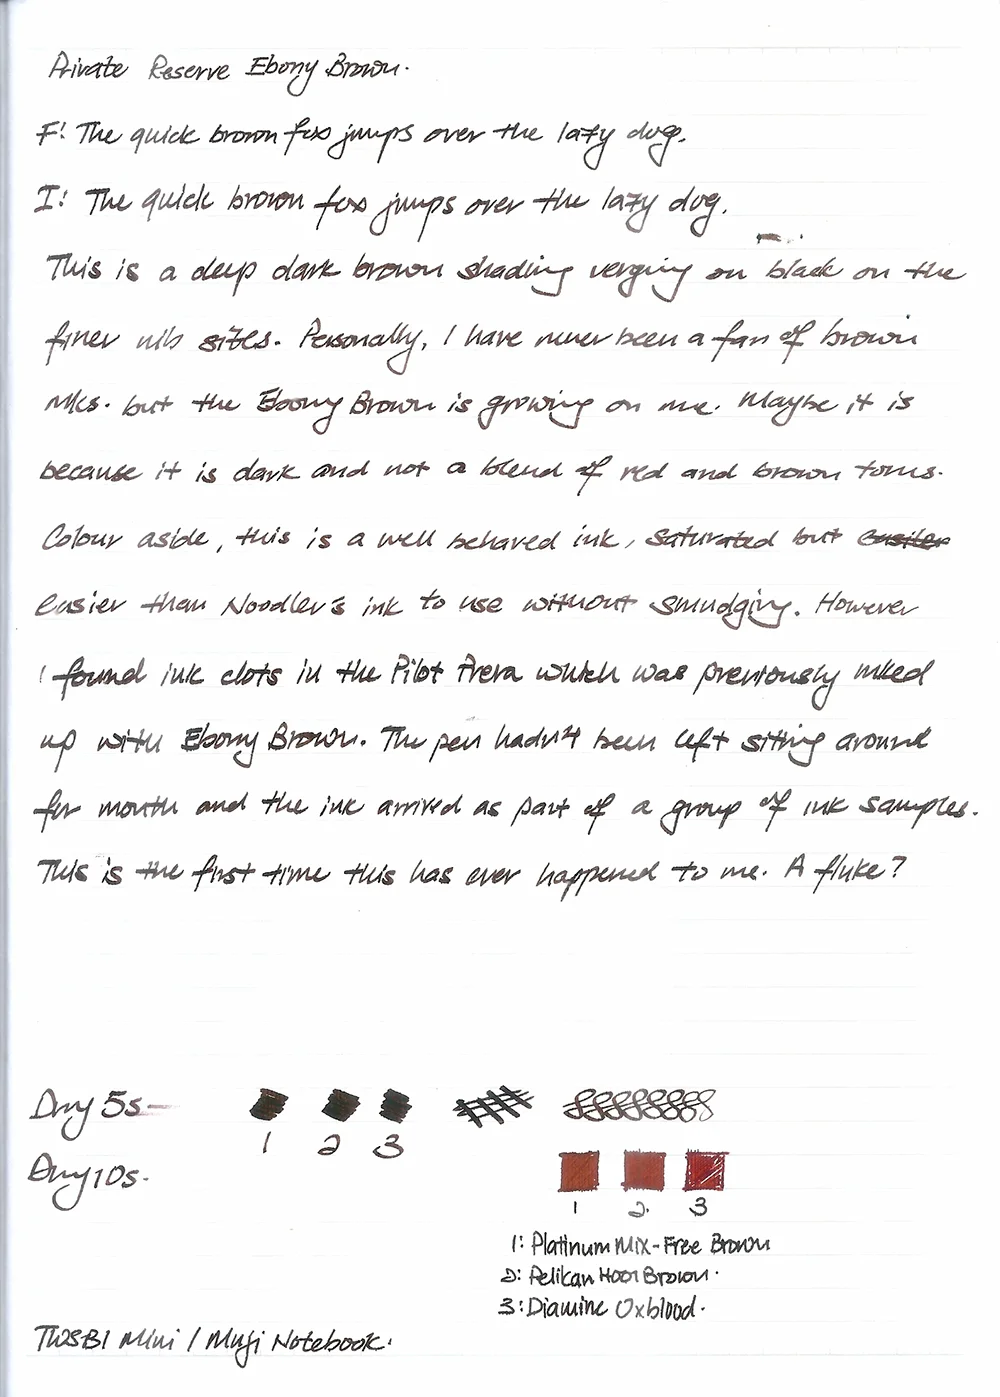 Private Reserve Ebony Brown.
F: The quick brown fox jumps over the lazy dog.
I: The quick brown fox jumps over the lazy dog.
This is a deep dark brown shading verging on black on the
finer nib sizes. Personally, I have never been a fan of brown
inks. but the Ebony Brown is growing on me. Maybe it is
because it is dark and not a blend of red and brown tones.
Colour aside, this is a well behaved ink, saturated but easiler
easier than Noodler's ink to use without smudging. However
I found ink clots in the Pilot Prera which was previously inked
up with Ebony Brown. The pen hadn't been left siting around
for month and the ink arrived as part of a group of ink samples.
This is the first time this has ever happened to me. A fluke?
Dry 5s-
1 2 3
Dry 10s-
1 2. 3
1: Platinum Mix-Free Brown
2: Pelikan Brown.
3: Diamine Oxblood.
TWSBI Mini / Muji Notebook.